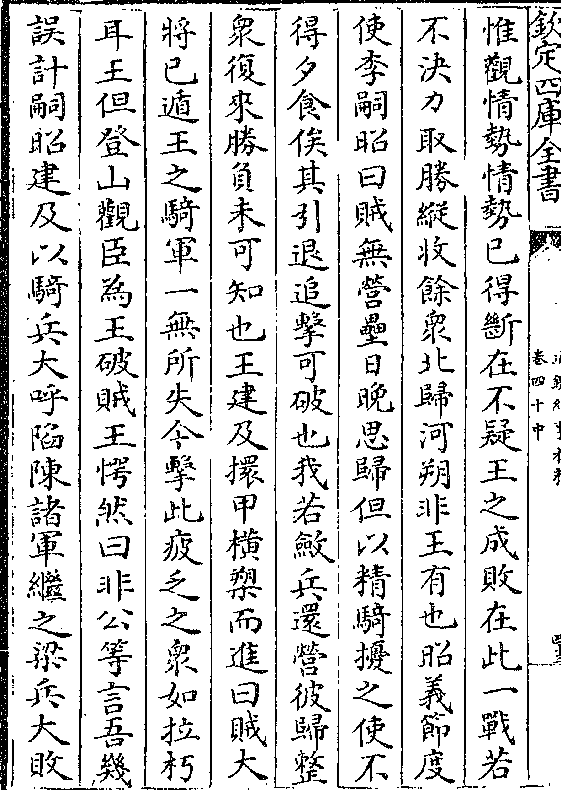 欽定四庫全書
卷四十中
惟觀情勢情勢已得斷在不疑王之成敗在此一戰若
不決力取勝縱收餘衆北歸河朔非王有也昭義節度
使李嗣昭曰賊無營壘日晚思歸但以精騎擾之使不
得夕食俟其引退追擊可破也我若斂兵還營彼歸整
衆復來勝負未可知也王建及擐甲橫槊而進曰賊大
將已遁王之騎軍一無所失今擊此疲乏之衆如拉朽
耳王但登山觀臣為王破賊王愕然曰非公等言吾幾
誤計嗣昭建及以騎兵大呼陷陳諸軍繼之梁兵大敗